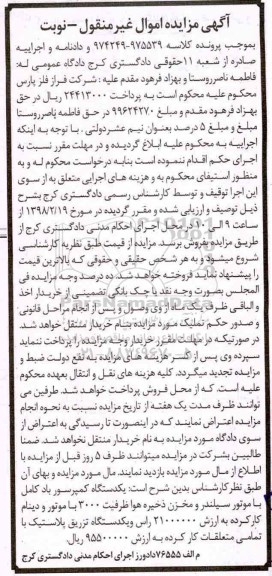 آگهی مزایده اموال غیر منقول - نوبت
بموجب پرونده کلاسه ۹۷۵۵۳۹-۹۷۴۲۴۹ و دادنامه و اجراییه
صادره از شعبه ۱۱حقوقی دادگستری کرج دادگاه عمومی له:
فاطمه ناصرروستا و بهزاد فرهود مقدم علیه : شرکت فراز فلز پارس
محکوم علیه محکوم است به پرداخت ۲۴۴۱۳۰۰۰ ریال در حق
بهزاد فرهود مقدم و مبلغ ۹۹۶۲۴۳۷۰ در حق فاطمه ناصرروستا
مبلغ و مبلغ ۵ درصد بعنوان نیم عشردولتی . با توجه به اینکه
اجراییه به محکوم علیه ابلاغ گردیده و در مهلت مقرر نسبت به
اجرای حکم اقدام ننموده است بنابه درخواست محکوم له و به
منظور استیفای محکوم به و هزینه های اجرایی متعلق به از سوی
این اجرا توقیف و توسط کارشناس رسمی دادگستری کرج بشرح
ذیل توصیف و ارزیابی شده و مقرر گردیده در مورخ ۱۳۹۸/۲/۱۹ از
ساعت ۹ الی ۱۰ در محل اجرای احکام مدنی دادگستری کرج از
طریق مزایده بفروش برسد. مزایده از قیمت طبق نظریه کارشناسی
شروع میشود و به هر شخص حقیقی و حقوقی که بالاترین قیمت
را پیشنهاد نماید فروخته خواهد شد. ده درصد وجه مزایده فی
المجلس بصورت وجه نقد یا چک بانکی تضمینی از خریدار اخذ
و الباقی ظرف یک ماه از وی وصول و پس از انجام مراحل قانونی
و صدور حکم تملیک مورد مزایده بنام خریدار منتقل خواهد شد.
در صورتیکه در مهلت مقرر خریدار وجه مزایده را پرداخت ننماید
سپرده وی پس از کسر هزینه های مزایده به نفع دولت ضبط و
مزایده تجدید میگردد. کلیه هزینه های نقل و انتقال بعهده محکوم
علیه است. که از محل فروش پرداخت خواهد شد. طرفین می
توانند ظرف مدت یک هفته از تاریخ مزایده نسبت به نحوه انجام
مزایده اعتراض نمایند که در اینصورت تا رسیدگی به اعتراض از
سوی دادگاه مورد مزایده به نام خریدار منتقل نخواهد شد. ضمنا
طالبین بشرکت در مزایده میتوانند ظرف ۵ روز قبل از مزایده با
اطلاع از مال مورد مزایده بازدید نمایند. مال مورد مزایده و بهای آن
طبق نظر کارشناس بدین شرح است: یکدستگاه کمپرسور باد کامل
با موتور سیلندر و مخزن ذخیره هوا ظرفیت ۳۰۰۰ با موتور و دینام
کار کرده به ارزش ۲۱۰۰۰۰۰۰ راس ویکدستگاه تزریق پلاستیک با
تمامی متعلقات کار کرده به ارزش ۹۵۵۰۰۰۰۰ ریال.
م الف ۷۶۵۵۵دادورز اجرای احکام مدنی دادگستری کرج